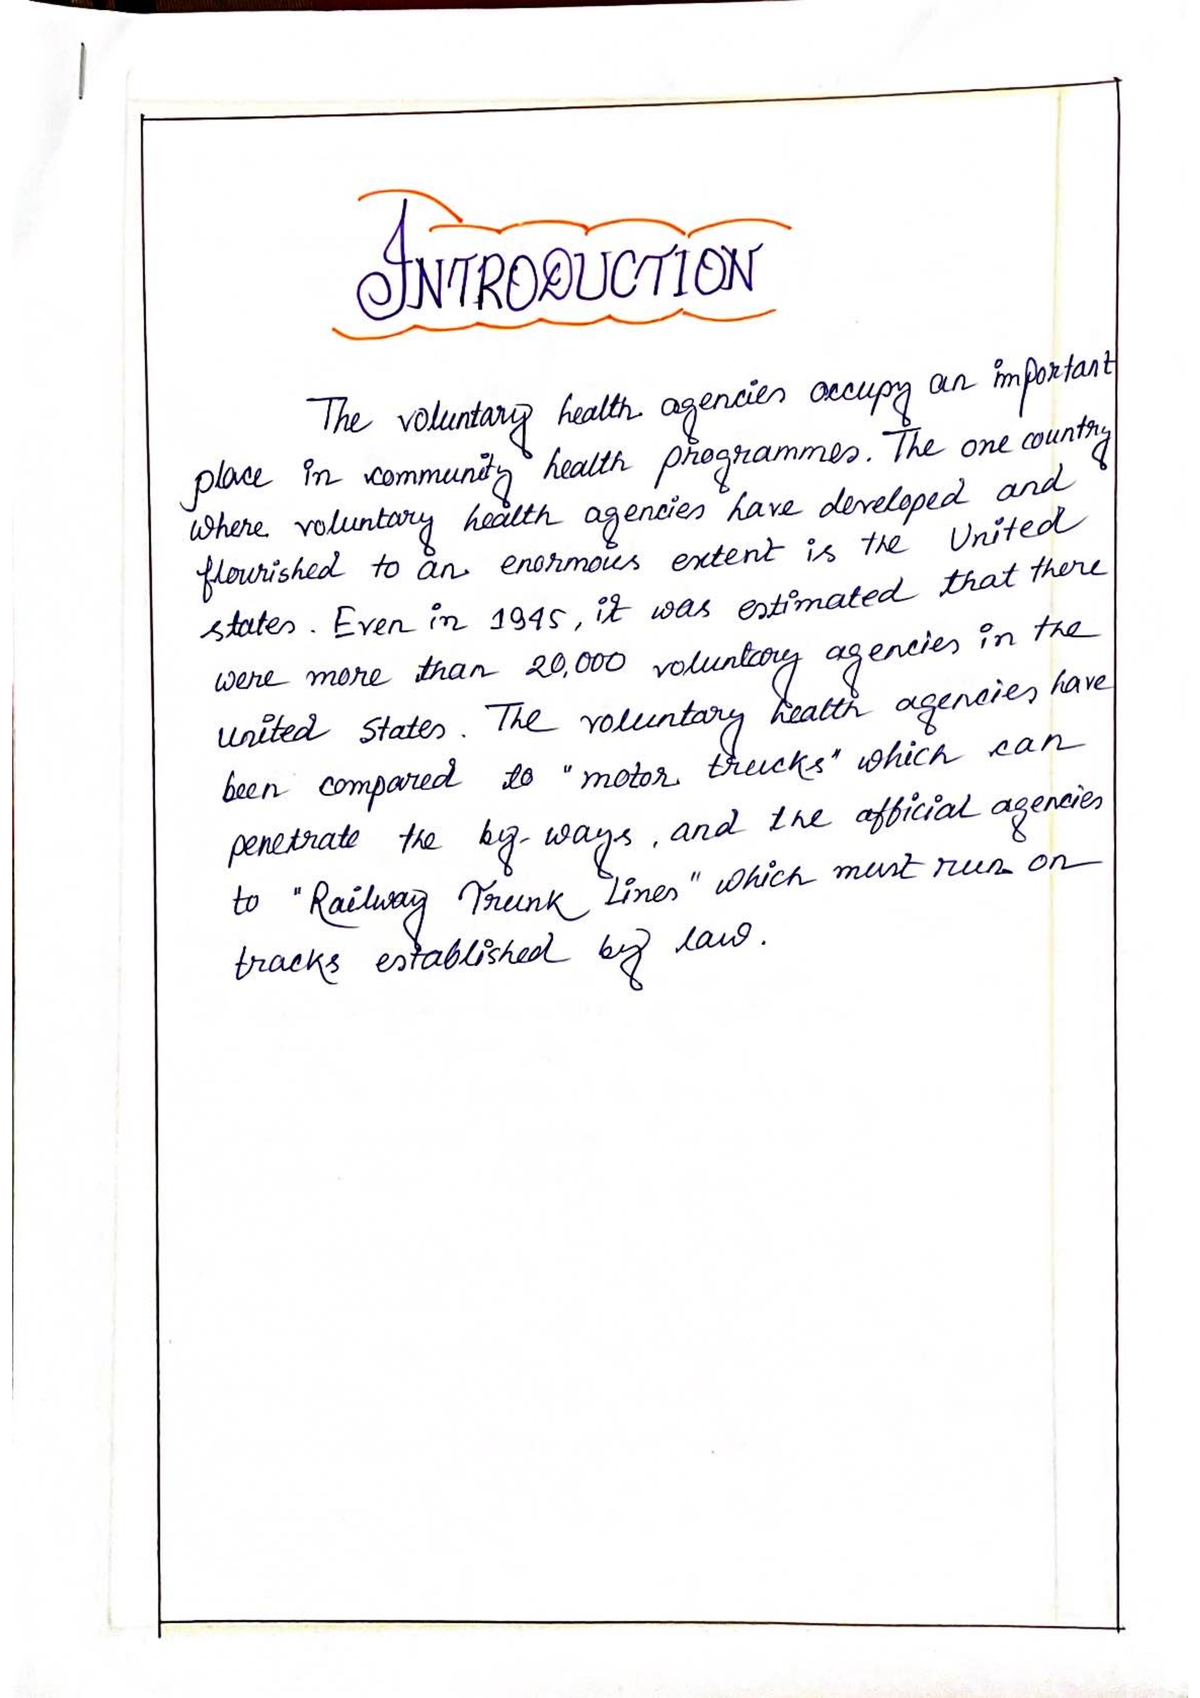 INTRODUCTION
The voluntary health agencies occupy an important
place in community health programmes. The one country
where voluntary health agencies have developed and
flourished to an enormous extent is the United
states. Even in 1945, it was estimated that there
were more than 20,000 voluntary agencies in the
united States. The voluntary health agencies have
been compared to "motor trucks" which can
penetrate the by-ways, and the official agencies
to "Railway Trunk Lines" which must run on
tracks established by law.